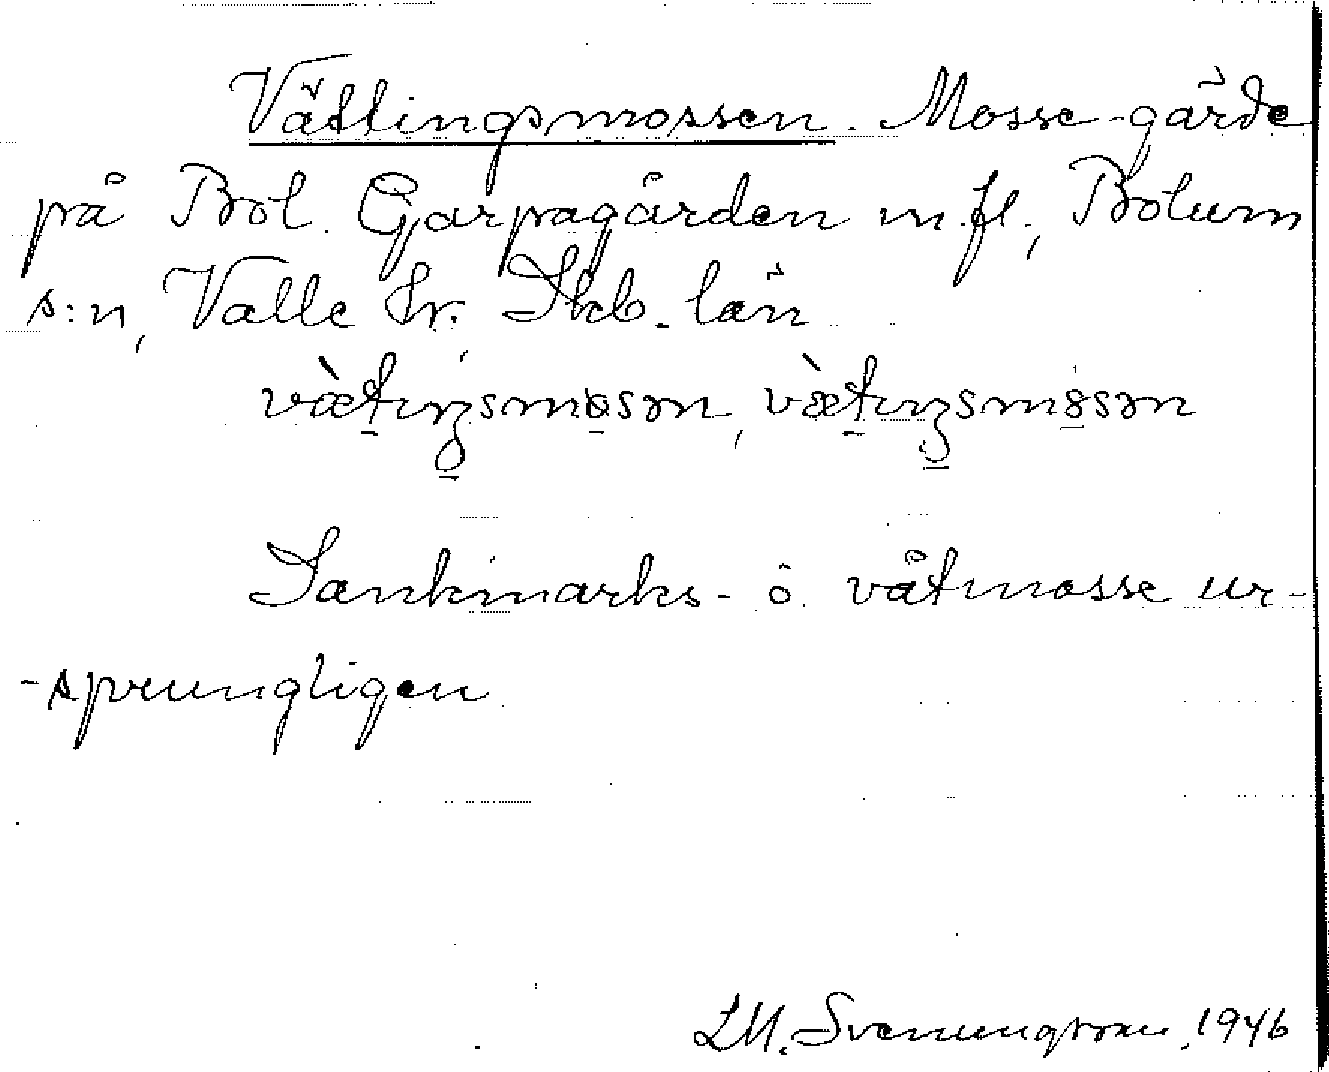 Vätlingsmossen. Mosse-gärde
på Bol. Garpagården m.fl., Bolum
s:n, Valle hr. Skb. län
vætıŋsmosən, vætıŋsmosən
Sankmarks- o. våtmosse ur-
-sprungligen
LM. Svenungsson, 1946